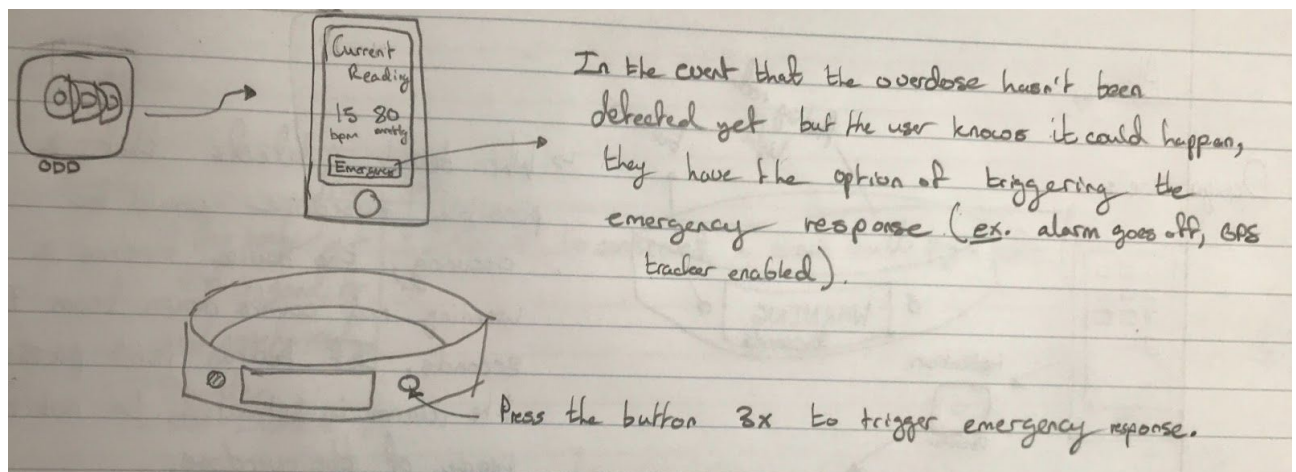 Current
Reading
15 80
bpm
Emergency
ODD
In the event that the overdose hasn't been
detected yet but the user knows it could happen,
they have the option of triggering the
emergency response (ex. alarm goes off, GPS
tracker enabled).
Press the button 3x to trigger emergency response.